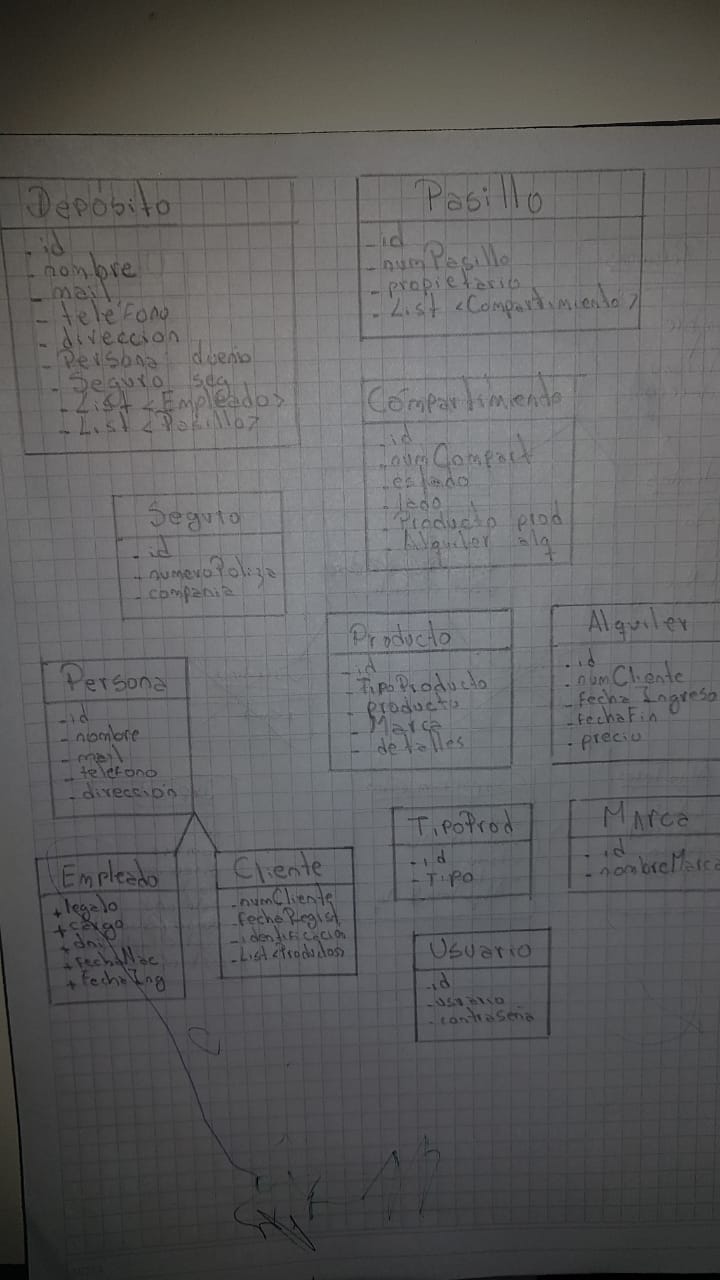 Depósito
- id
- nombre
- mail
- teléfono
- dirección
- Persona dueño
- Seguro seg
- List <Empleado>
- List <Pasillo>
Pasillo
- id
- numPasillo
- propietario
- List <Compartimiento>
Compartimiento
- id
- numCompart
- estado
- lado
- Producto prod
- Alquiler alq
Seguro
- id
- numeroPoliza
- compania
Producto
- id
- TipoProducto
- producto
- Marca
- detalles
Alquiler
- id
- numCliente
- fecha Ingreso
- fechaFin
- precio
Persona
- id
- nombre
- mail
- telefono
- dirección
TipoProd
- id
- Tipo
Marca
- id
- nombreMarca
Empleado
+ legajo
+ cargo
+ dni
+ fechaNac
+ fechaIng
Cliente
- numCliente
- fechaRegist
- identificacion
- List <Productos>
Usuario
- id
- usuario
- contraseña